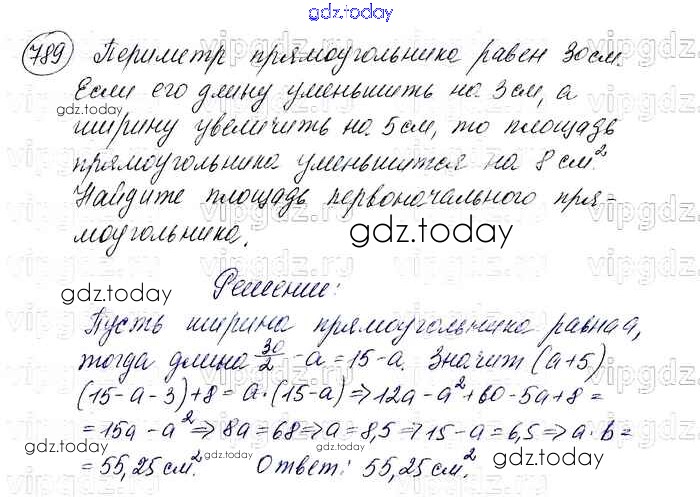 gdz.today
789 Периметр прямоугольника равен 30 см.
Если его длину уменьшить на 3 см, а
gdz.today
ширину увеличить на 5 см, то площадь
прямоугольника уменьшится на 8 см².
Найдите площадь первоначального пря-
моугольника.
gdz.today
Решение:
gdz.today
gdz.today
Пусть ширина прямоугольника равна a,
тогда длина 30/2 - a = 15 - a. Значит (a+5)
(15-a-3)+8 = a·(15-a) ⇒ 12a - a² + 60 - 5a + 8 =
= 15a - a² ⇒ 8a = 68 ⇒ a = 8,5 ⇒ 15 - a = 6,5 ⇒ a·b =
gdz.today
= 55,25 см². Ответ: 55,25 см².
gdz.today